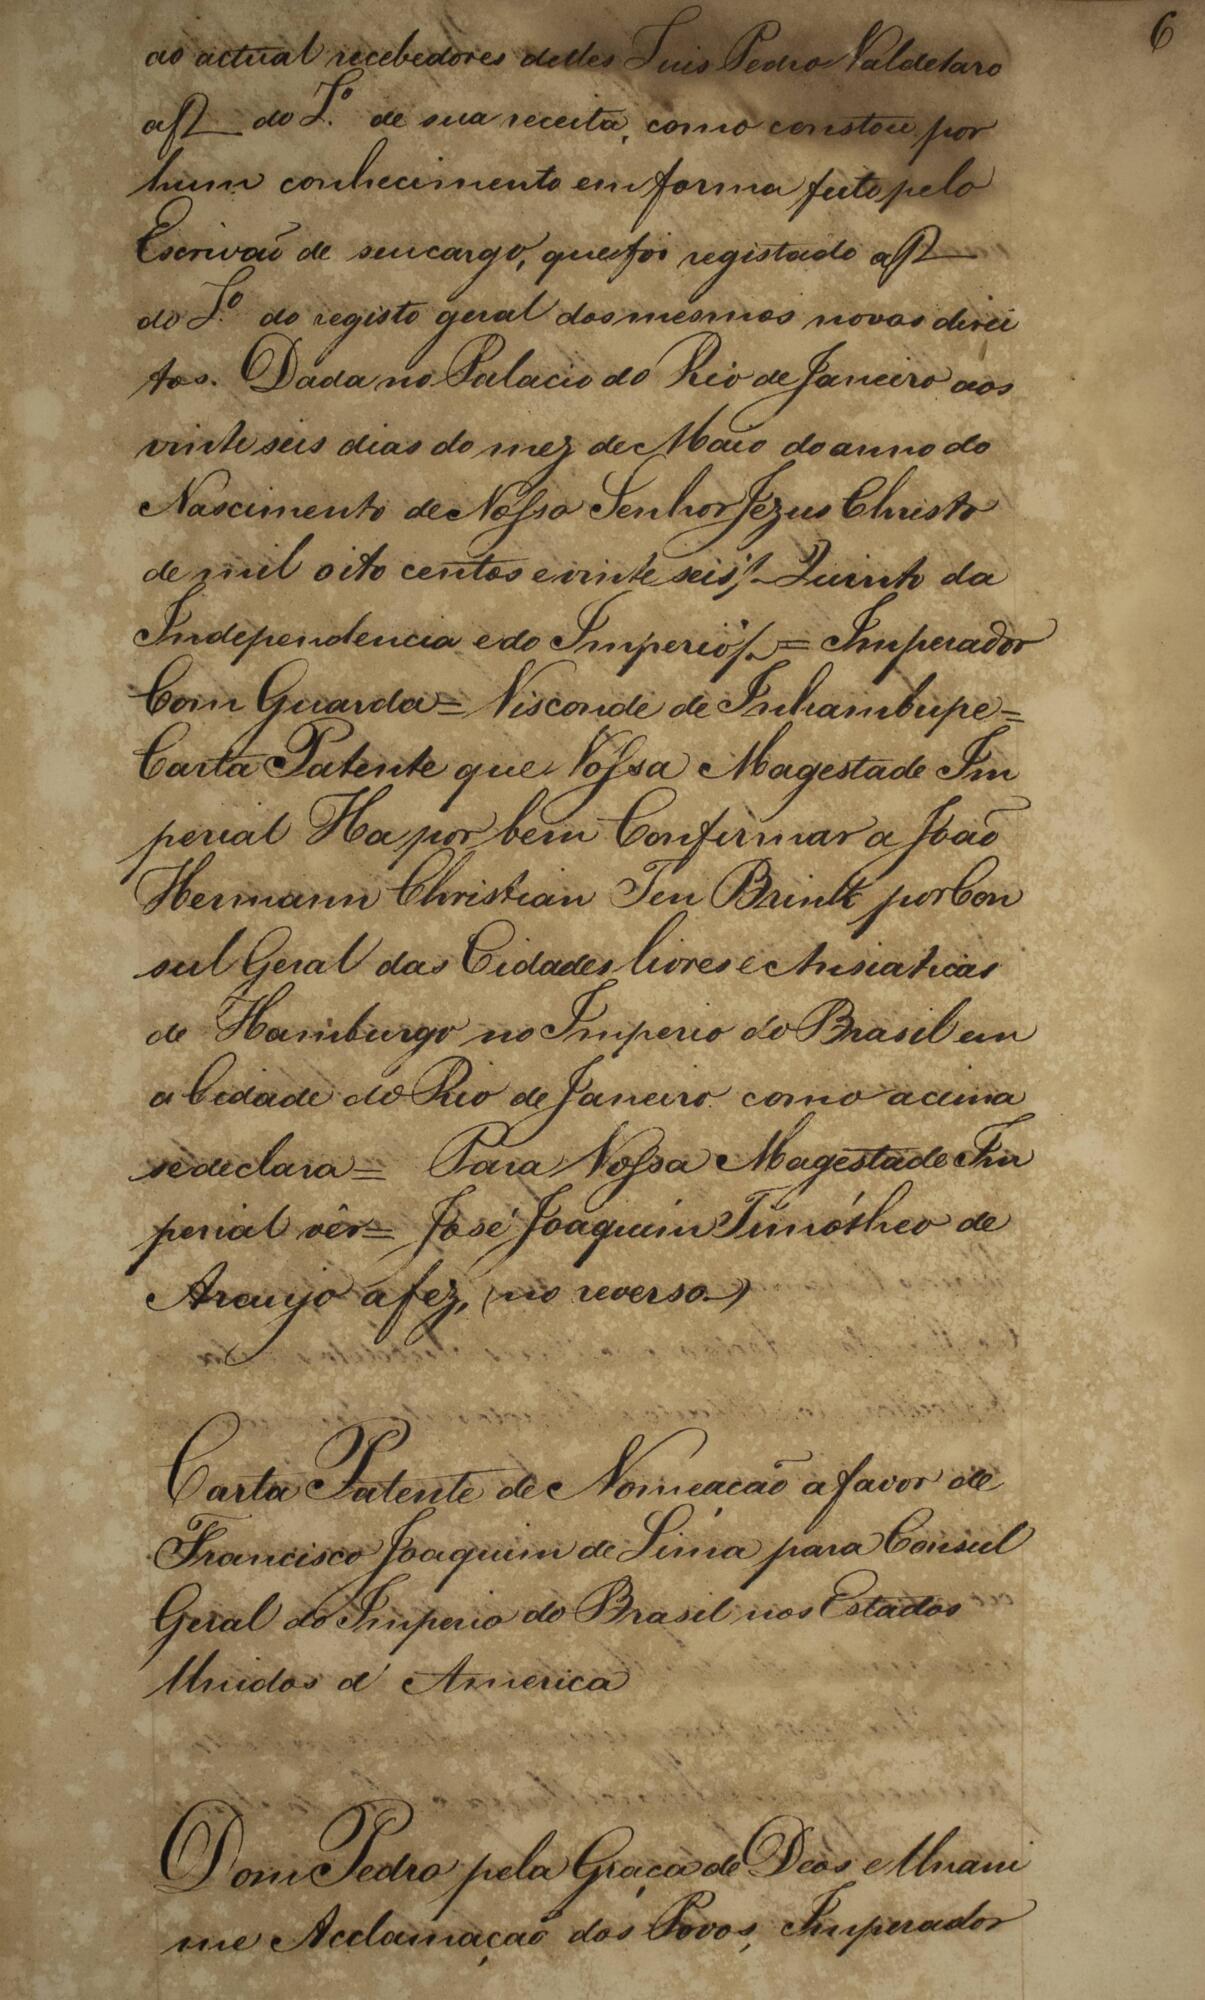 6
ao actual recebedores delles Luis Pedro Valdetaro
af do L.º de sua receita, como constou por
hum conhecimento em forma feito pelo
Escrivaõ de seu cargo, que foi registado af
do L.º do registo geral dos mesmos novos direi
tos. Dada no Palacio do Rio de Janeiro aos
vinte seis dias do mez de Maio do anno do
Nascimento de Nosso Senhor Jezus Christo
de mil oito centos e vinte seis Quinto da
Independencia e do Imperio = Imperador
Com Guarda = Visconde de Inhambupe =
Carta Patente que Vossa Magestade Im
perial Ha por bem Confirmar a Joaõ
Hermann Christian Ten Brink por Con
sul Geral das Cidades livres e Ansiaticas
de Hamburgo no Imperio do Brasil em
a Cidade do Rio de Janeiro como acima
se declara = Para Vossa Magestade Im
perial vêr = José Joaquim Timótheo de
Araujo a fez, (no reverso)
Carta Patente de Nomeacaõ a favor de
Francisco Joaquim de Lima para Consul
Geral do Imperio do Brasil nos Estados
Unidos d'America
Dom Pedro pela Graça de Deos e Unani
me Acclamaçaõ dos Povos, Imperador